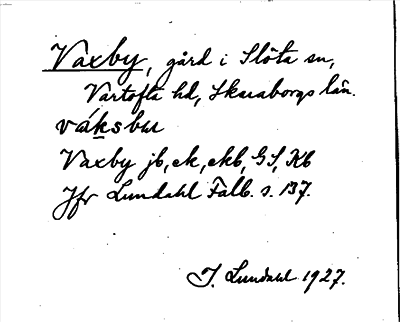 Vaxby, gård i Slöta sn,
Vartofta hd, Skaraborgs län.
váksbu
Vaxby jb, ek, ekb, GS, Kb
Jfr Lundahl Falb. s. 137.
I. Lundahl 1927.